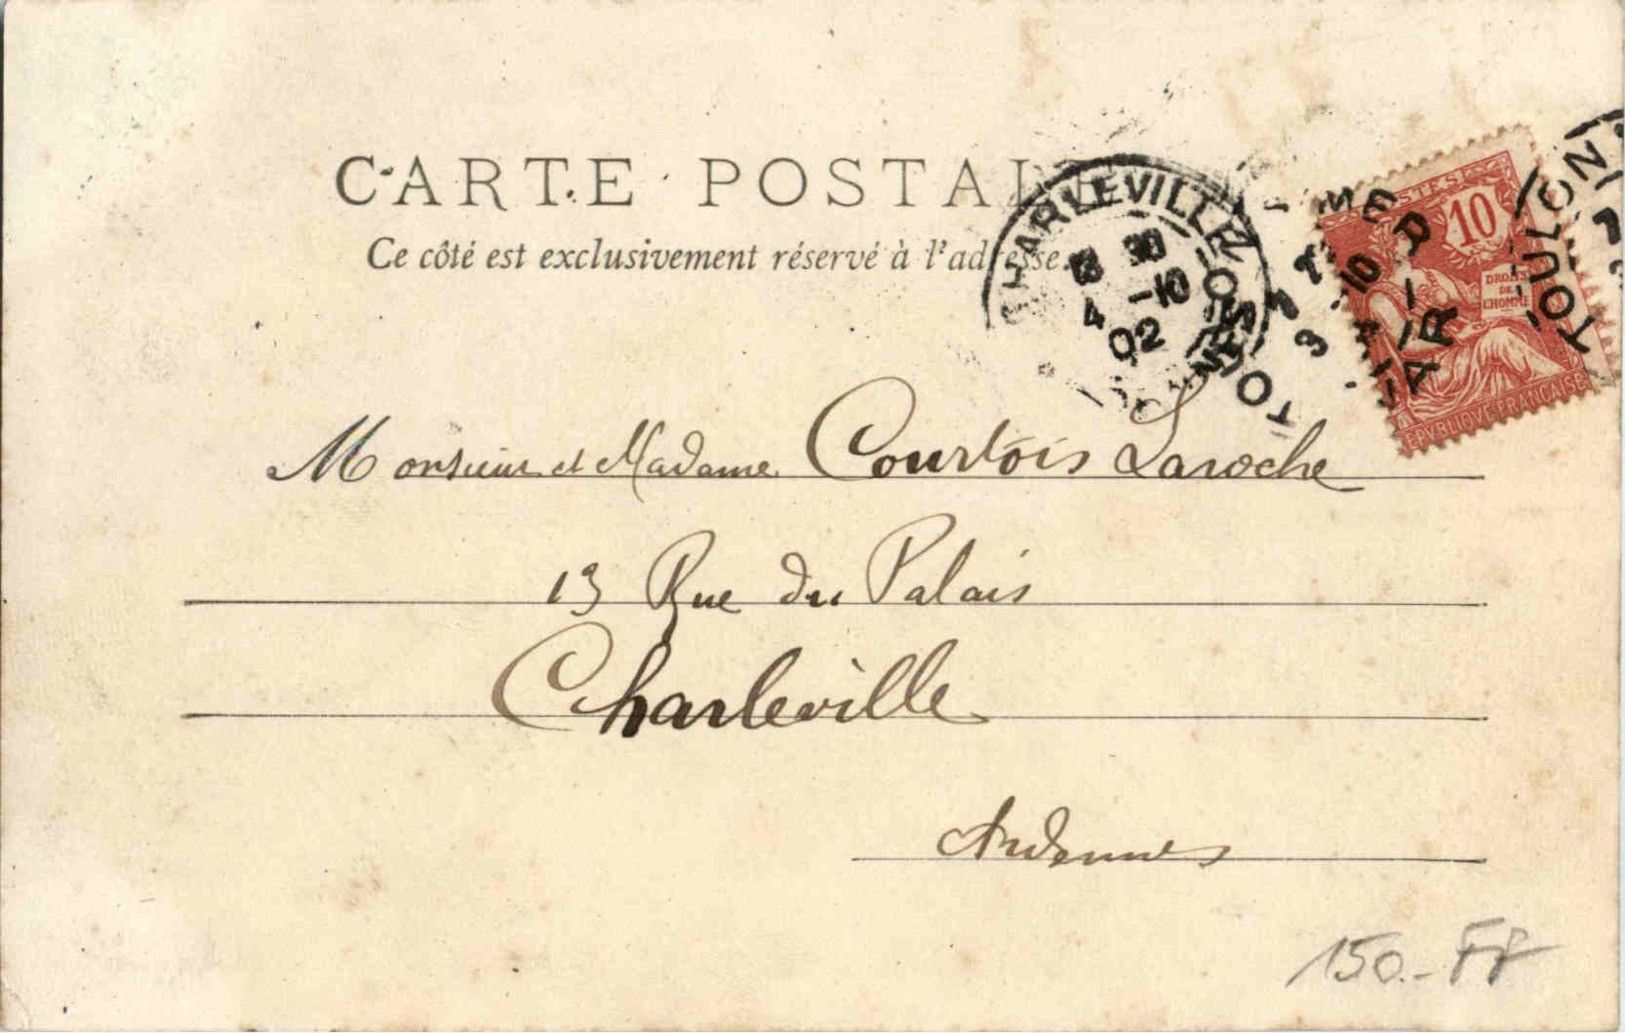 CARTE POSTALE
Ce côté est exclusivement réservé à l'adresse.
CHARLEVILLE
4 -10
02
TOULON
VAR
POSTES
10
DROITS
DE
L'HOMME
REPVBLIQVE FRANCAISE
Monsieur et Madame Courtois Laroche
13 Rue du Palais
Charleville
Ardennes
150.- FF